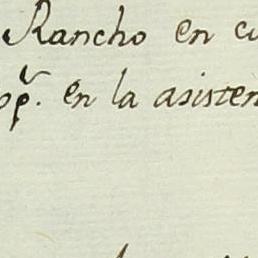 Rancho en
en la asisten